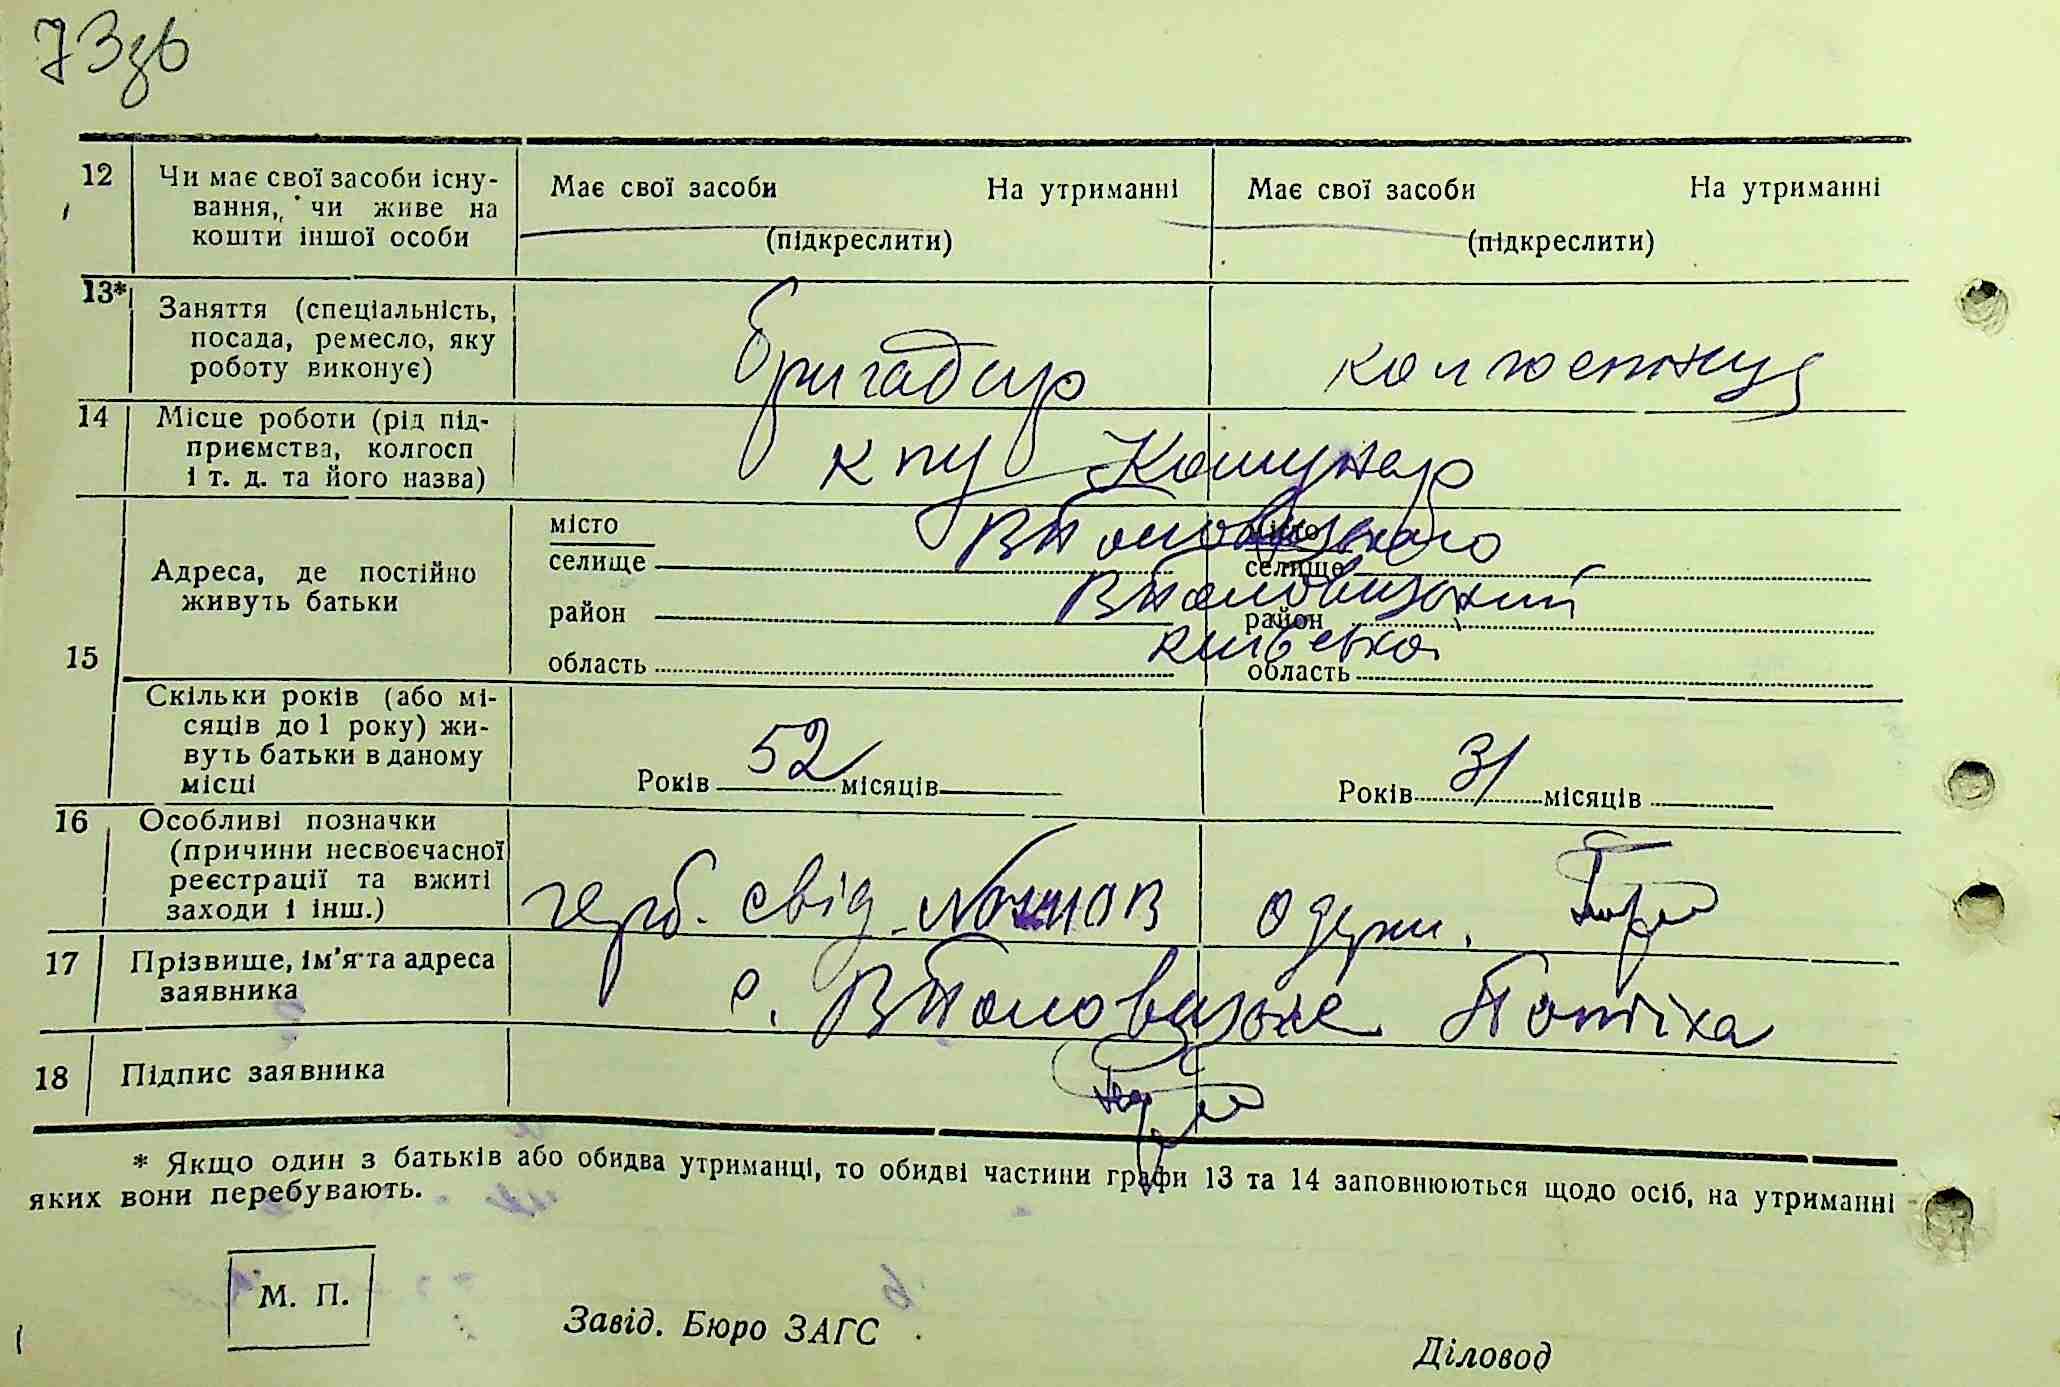 73зв
12 Чи має свої засоби існу-
вання, чи живе на
кошти іншої особи
Має свої засоби На утриманні
(підкреслити)
Має свої засоби На утриманні
(підкреслити)
13* Заняття (спеціальність,
посада, ремесло, яку
роботу виконує)
Бригадир
колгоспниця
14 Місце роботи (рід під-
приємства, колгосп
і т. д. та його назва)
к пу Комунар
15 Адреса, де постійно
живуть батьки
місто
селище
район
область
місто
селище
район
область
В Половецького
В Половецький
київська
Скільки років (або мі-
сяців до 1 року) жи-
вуть батьки в даному
місці
Років 52 місяців
Років 31 місяців
16 Особливі позначки
(причини несвоєчасної
реєстрації та вжиті
заходи і інш.)
герб. свід. одерж.
17 Прізвище, ім'я та адреса
заявника
с. В Половецьке Потіха
18 Підпис заявника
* Якщо один з батьків або обидва утриманці, то обидві частини графи 13 та 14 заповнюються щодо осіб, на утриманні
яких вони перебувають.
М. П.
Завід. Бюро ЗАГС
Діловод